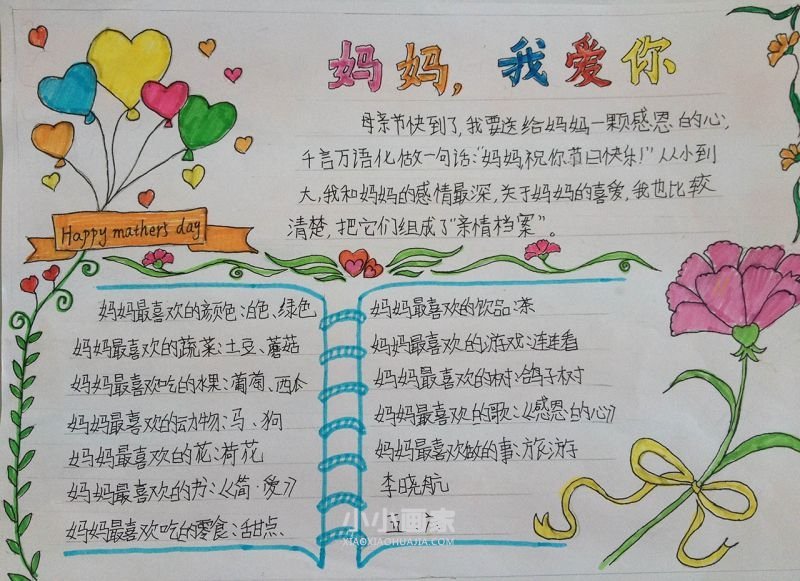 妈妈，我爱你
母亲节快到了，我要送给妈妈一颗感恩的心，
千言万语化做一句话："妈妈祝你节日快乐！"从小到
大，我和妈妈的感情最深，关于妈妈的喜爱，我也比较
清楚，把它们组成了"亲情档案"。
Happy mathers day
妈妈最喜欢的颜色：白色、绿色
妈妈最喜欢的蔬菜：土豆、蘑菇
妈妈最喜欢吃的水果：葡萄、西瓜
妈妈最喜欢的动物：马、狗
妈妈最喜欢的花：荷花
妈妈最喜欢的书：《简·爱》
妈妈最喜欢吃的零食：甜点
妈妈最喜欢的饮品：茶
妈妈最喜欢的游戏：连连看
妈妈最喜欢的树：鸽子树
妈妈最喜欢的歌：《感恩的心》
妈妈最喜欢做的事：旅游
李晓航
小小画家
XIAOXIAOHUAJIA.COM